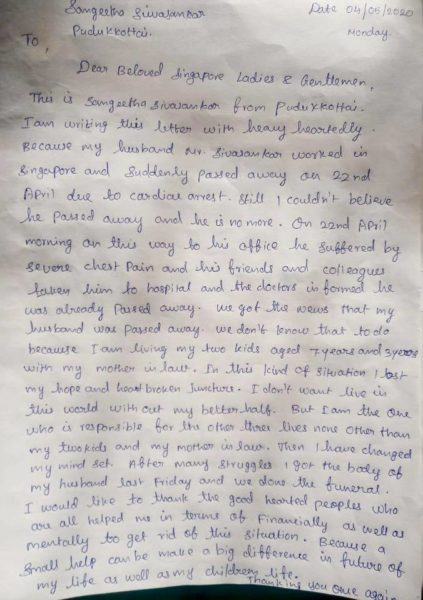 Sangeetha Sivasankar
Pudukkottai.
Date 04/05/2020
Monday.
To,
Dear Beloved Singapore Ladies & Gentlemen,
This is Sangeetha Sivasankar from Pudukkottai.
I am writing this letter with heavy heartedly.
Because my husband Mr. Sivasankar worked in
Singapore and suddenly passed away on 22nd
April due to cardiac arrest. Still I couldn't believe
he passed away and he is no more. On 22nd April
morning on this way to his office he suffered by
severe chest pain and his friends and colleagues
taken him to hospital and the doctors informed he
was already passed away. we got the news that my
husband was passed away. we don't know that to do
because I am living my two kids aged 7 years and 3 years
with my mother in law. In this kind of situation I lost
my hope and heart broken juncture. I don't want live in
this world with out my better half. But I am the one
who is responsible for the other three lives none other than
my two kids and my mother in law. Then I have changed
my mind set. After many struggles I got the body of
my husband last Friday and we done the funeral.
I would like to thank the good hearted peoples who
are all helped me in terms of Financially as well as
mentally to get rid of this situation. Because a
small help can be make a big difference in future of
my life as well as my children life.
Thanking you once again